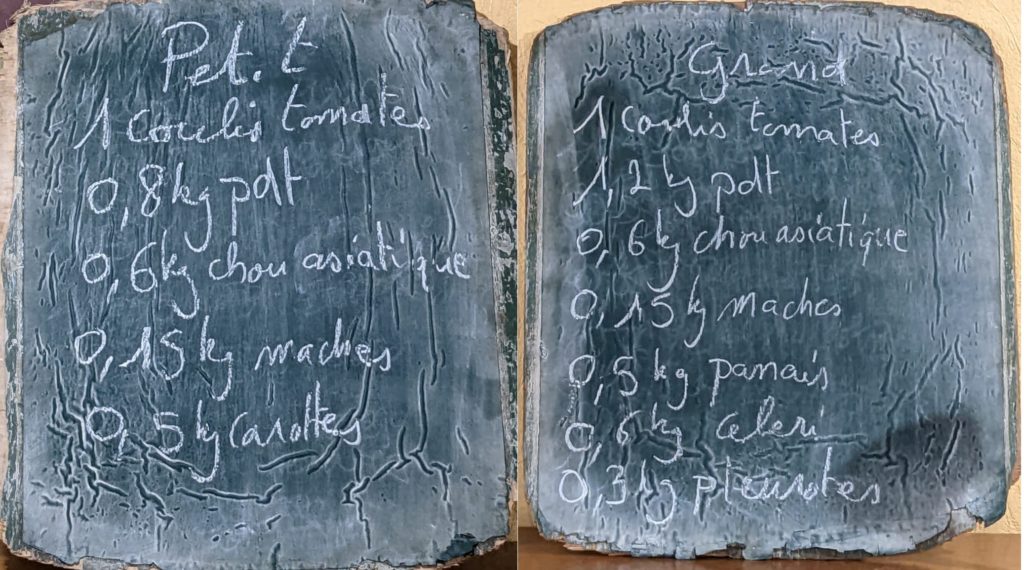 Petit
1 coulis tomates
0,8 kg pdt
0,6 kg chou asiatique
0,15 kg maches
0,5 kg carottes
Grand
1 coulis tomates
1,2 kg pdt
0,6 kg chou asiatique
0,15 kg maches
0,5 kg panais
0,6 kg celeri
0,3 kg pleurotes